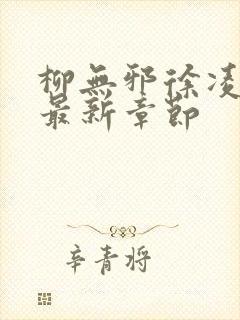 柳無邪徐凌
最新章節
辛青將